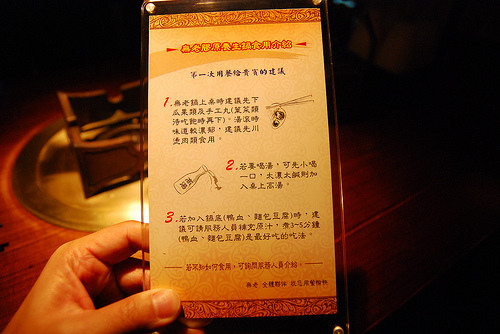 無老膠原養生鍋食用介紹
第一次用餐給貴賓的建議
1.無老鍋上桌時建議先下
瓜果類及手工丸(葉菜類
待吃飽時再下)。湯滾時
味道較濃郁，建議先川
燙肉類食用。
2.若要喝湯，可先小喝
一口，太濃太鹹則加
入桌上高湯。
高湯
3.若加入鍋底(鴨血、麵包豆腐)時，建
議可請服務人員補充原汁，煮3~5分鐘
(鴨血、麵包豆腐)是最好吃的吃法。
若不知如何食用，可詢問服務人員介紹。
無老 全體夥伴 祝您用餐愉快